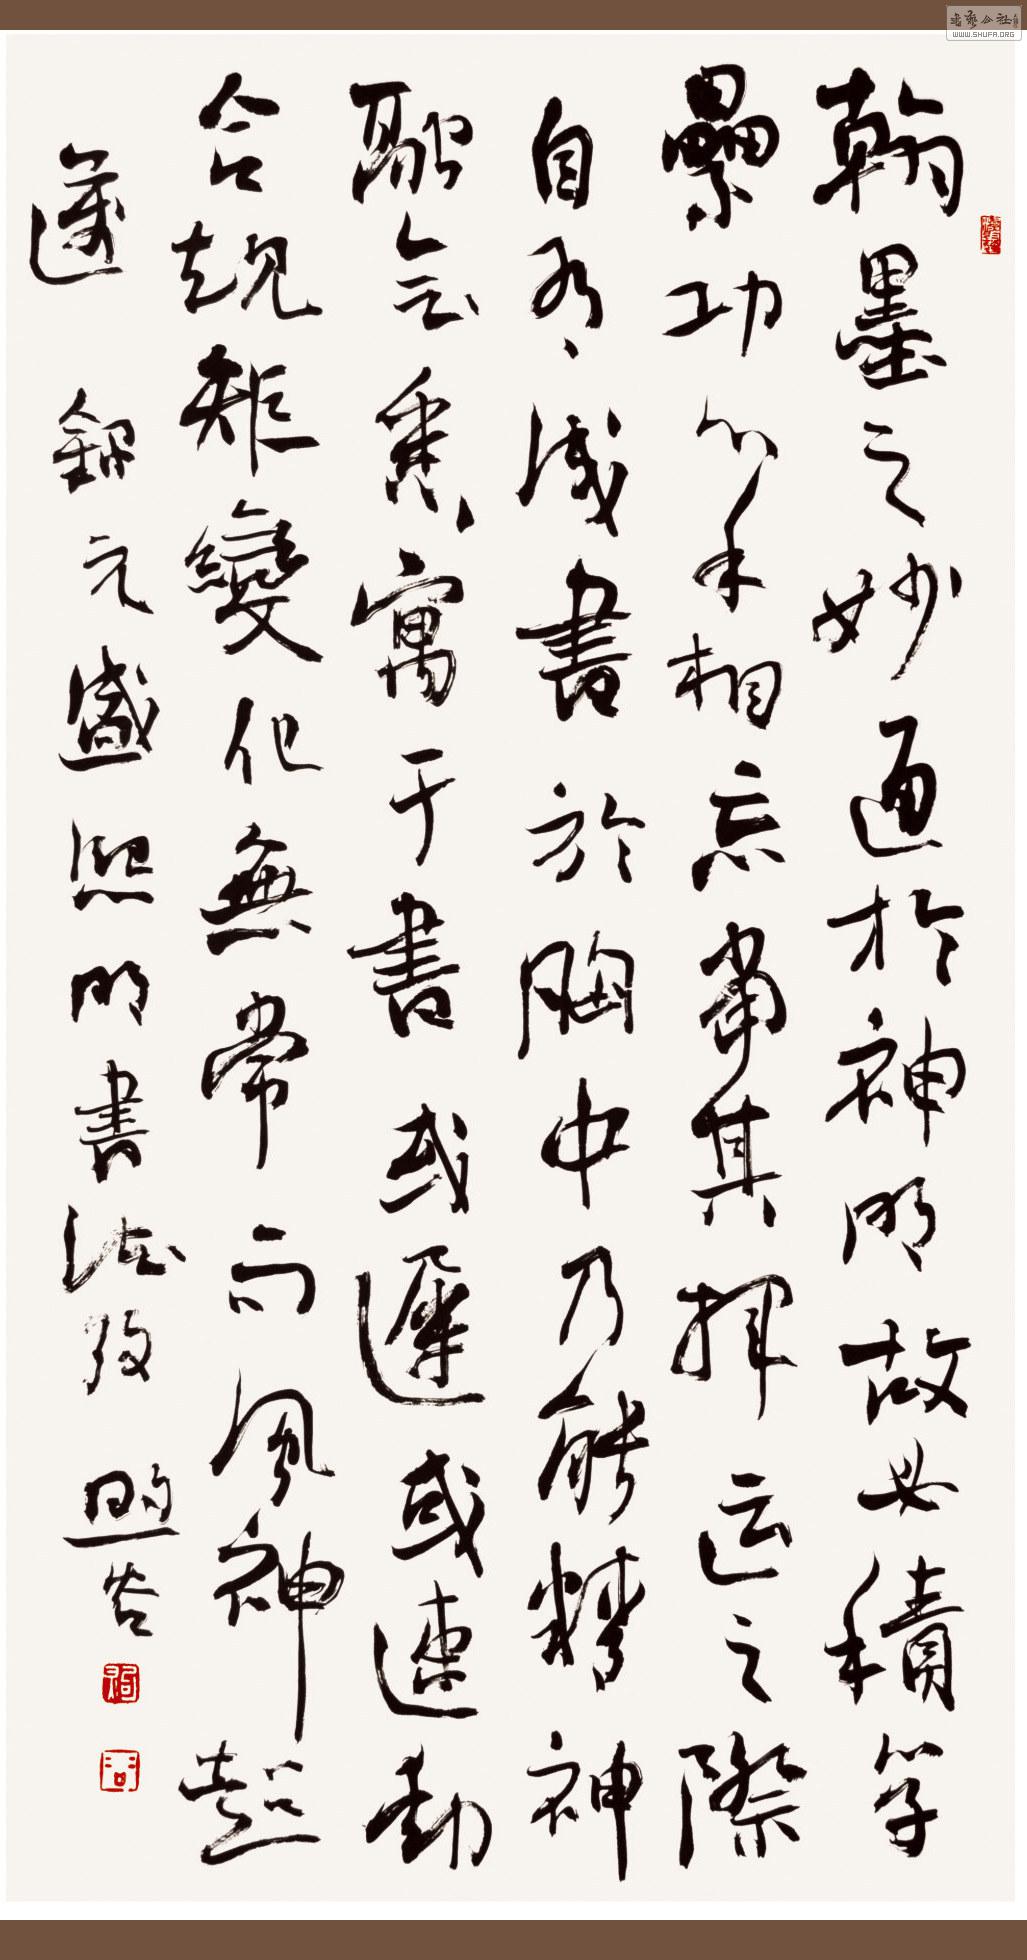 翰墨之妙通於神明故必積學
纍功心手相忘當其揮运之際
自有成書於胸中乃能精神
融會悉寓于書或遲或速動
合規矩變化無常而風神超
逸 錄元盛熙明書法攷
WWW.SHUFA.ORG